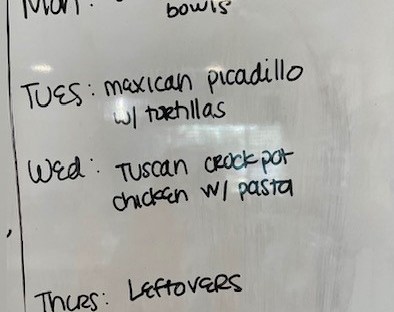 Mon:
bowls
TUES: mexican picadillo
w/ tortillas
Wed: TUSCAN CROCKPOT
chicken w/ pasta
Thurs: LEFTOVERS